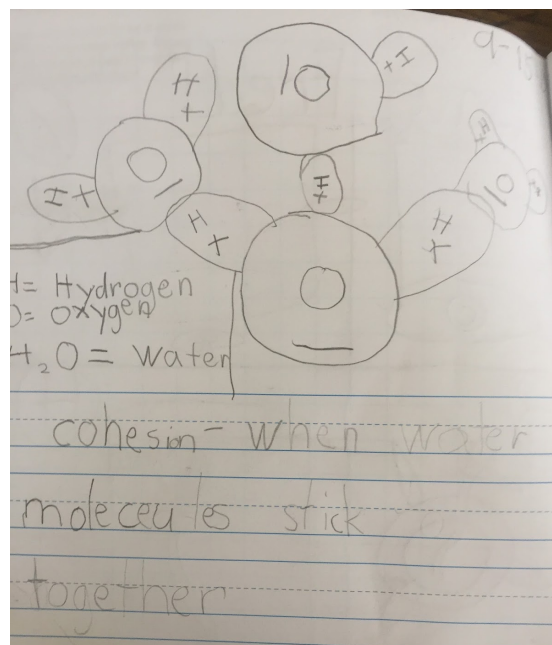 9-15
H
+
O
—
H +
H
+
— O
+ H
H
+
O
—
H
+
— O
+ H
H= Hydrogen
O= Oxygen
H₂O = Water
cohesion - when water
moleceules stick
together